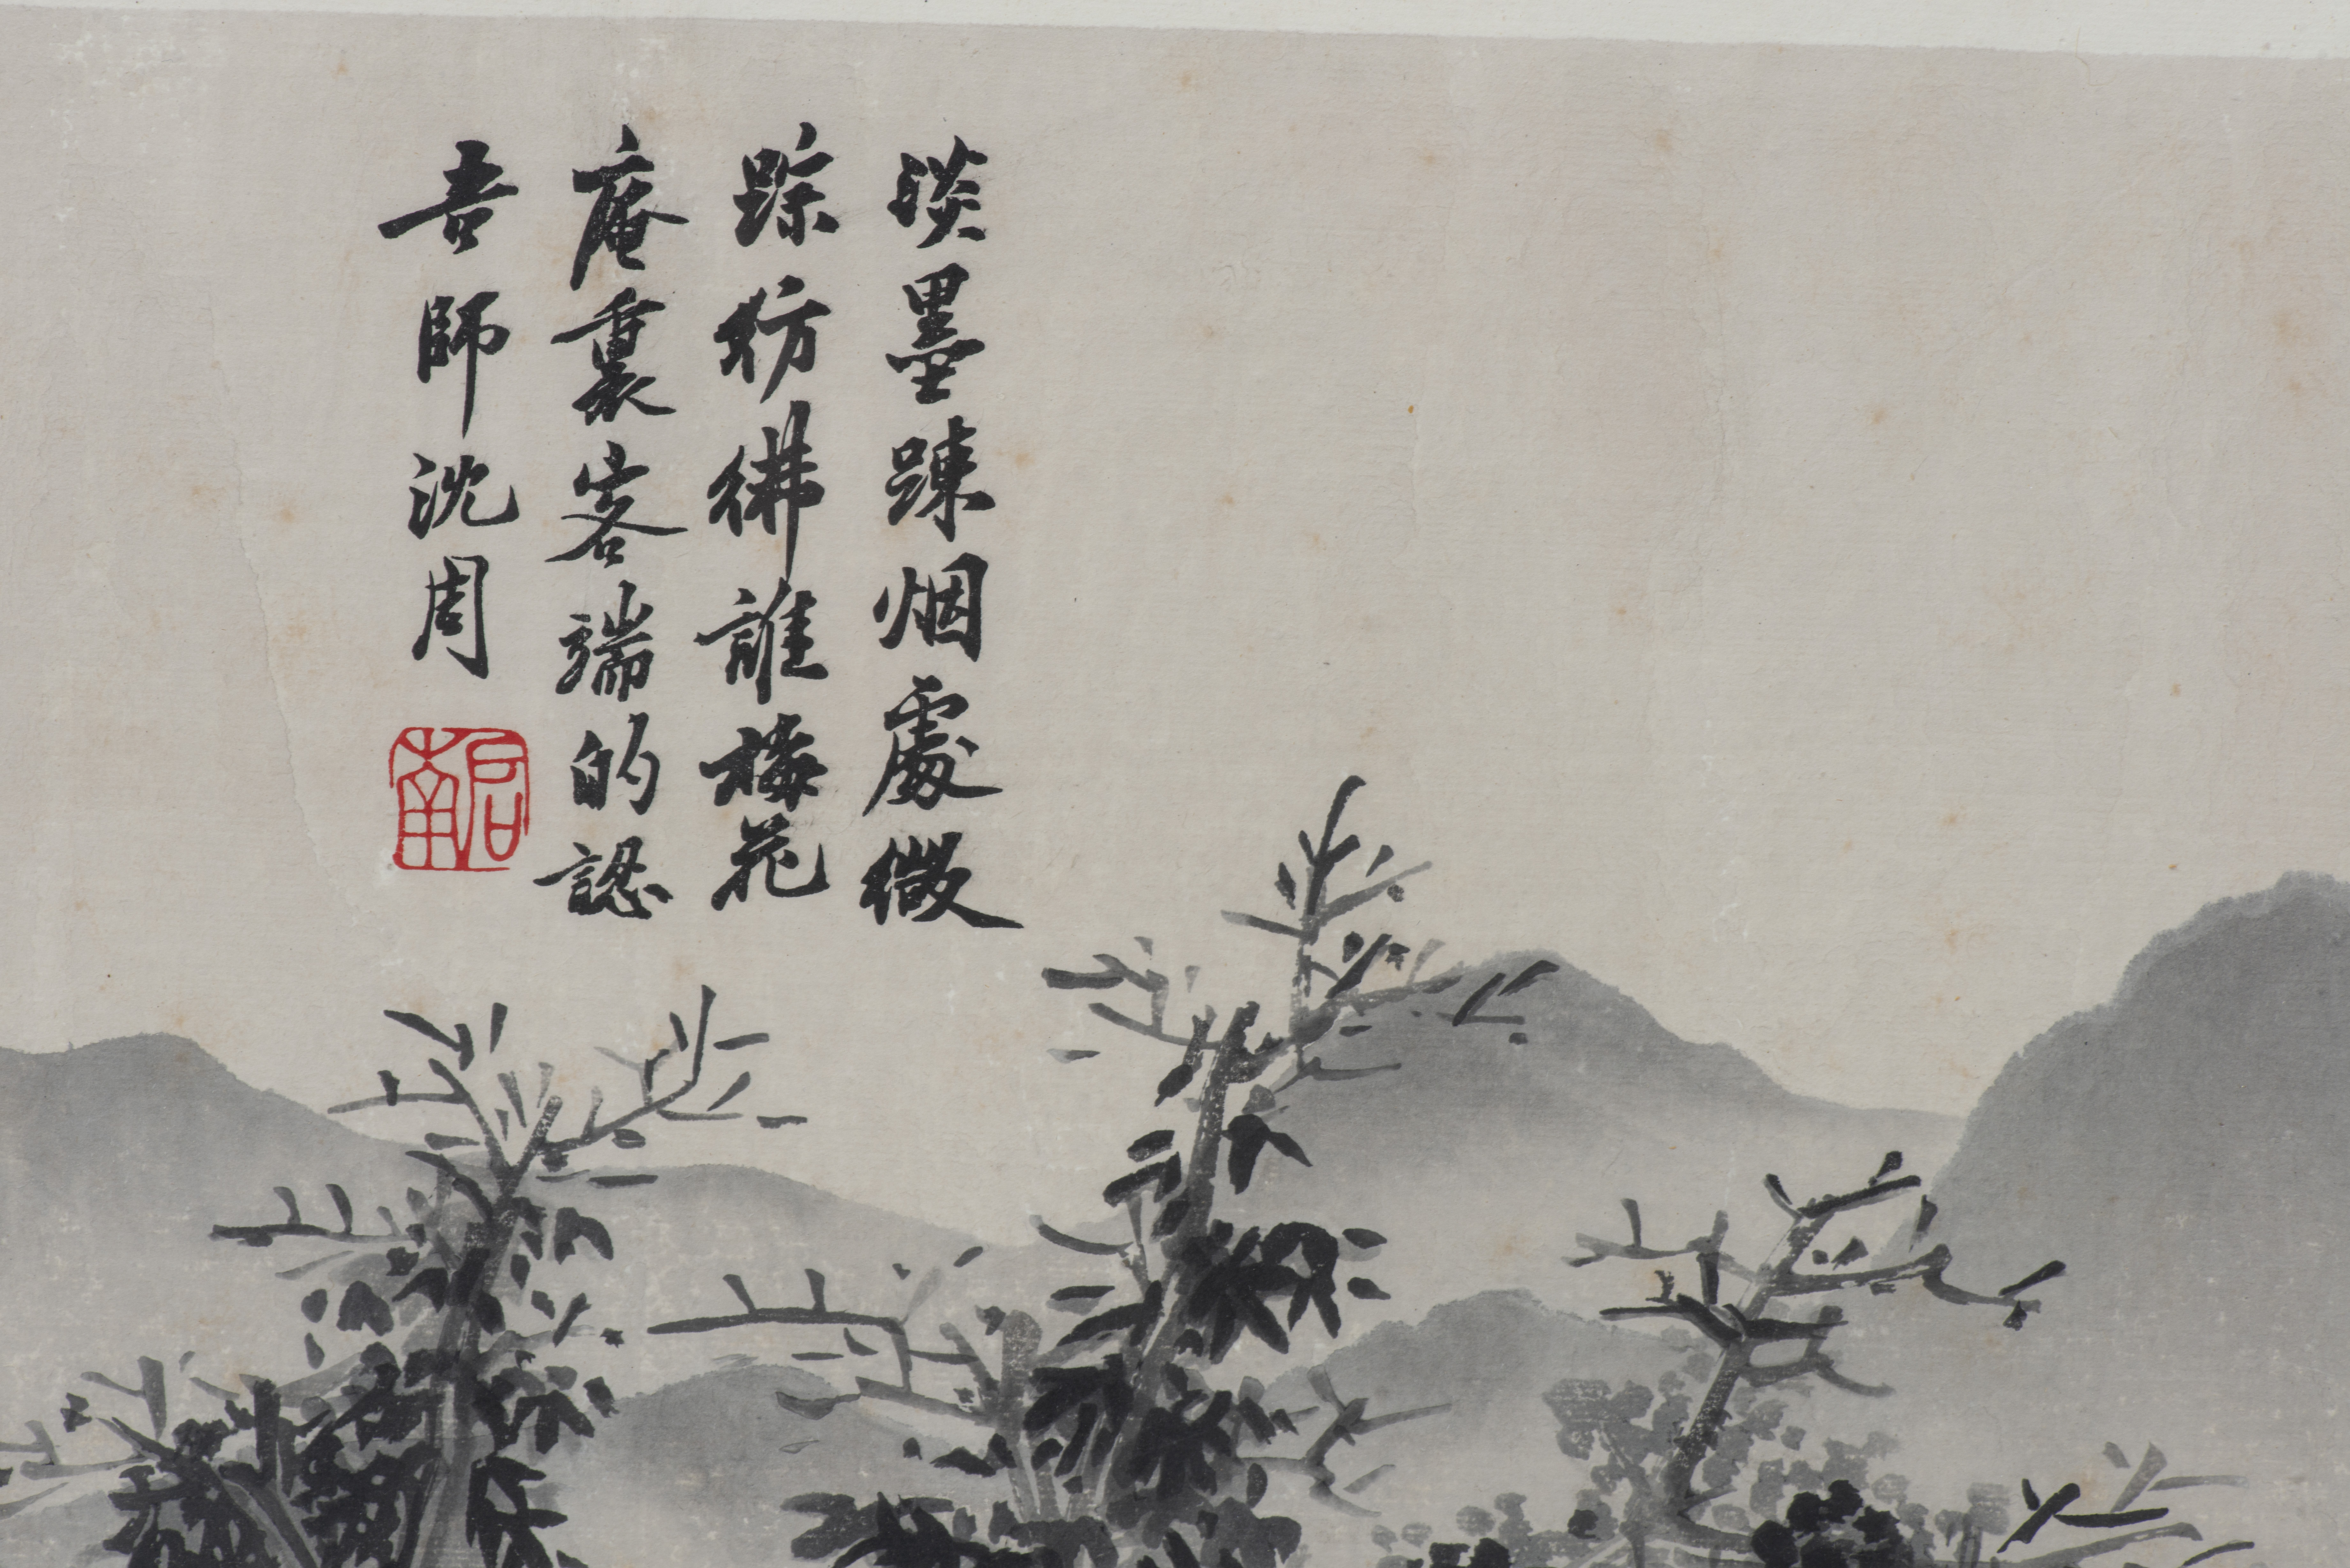 淡墨踈烟處微
踪彷彿誰梅花
庵裏客端的認
吾師沈周
启南